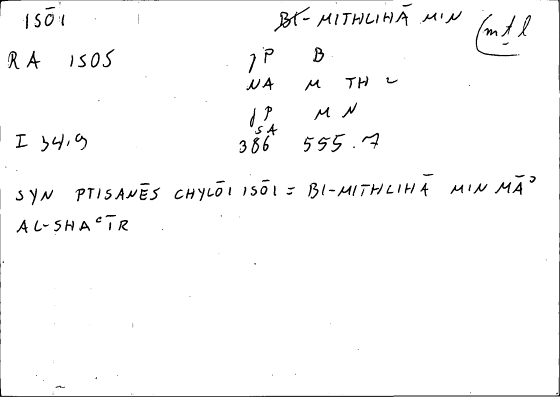 ISŌI B̶I̶-MITHLIHĀ MIN (mṯl
RA 1505 jP B
NA M TH L
jP M N
SA
I 34.9 386 555.7
SYN PTISANĒS CHYLŌI ISŌI = BI-MITHLIHĀ MIN MĀʾ
AL-SHAʿĪR